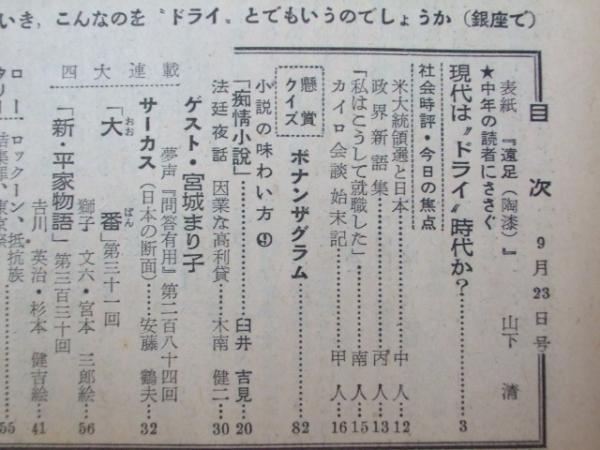 いき，こんなのを〝ドライ〟とでもいうのでしょうか（銀座で）
目次 9月23日号
表紙『遠足（陶漆）』 山下 清
★中年の読者にささぐ
現代は〝ドライ〟時代か？ 3
社会時評・今日の焦点
米大統領選と日本 中人 12
政界新語集 丙人 13
「私はこうして就職した」 南人 15
カイロ会談始末記 甲人 16
懸賞クイズ ボナンザグラム 82
小説の味わい方⑨
「痴情小説」 臼井吉見 20
法廷夜話 因業な高利貸 木南健二 30
ゲスト・宮城まり子
夢声『問答有用』第二百八十四回
サーカス（日本の断面） 安藤鶴夫 32
四大連載
「大番」第三十一回
おお ばん
獅子文六・宮本三郎絵 56
「新・平家物語」第三百三十回
吉川英治・杉本健吉絵 41
ロックーン、抵抗族
55